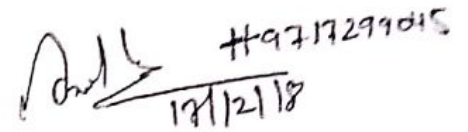 #9717299045
17/12/18